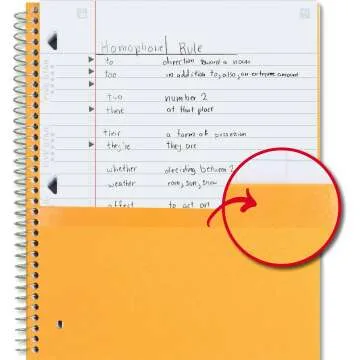 Homophone Rule
to direction toward a noun
too in addition to, also, an extreme amount
two number 2
there at that place
their a form of possession
they're they are
whether deciding between 2
weather rain, sun, snow
affect to act on